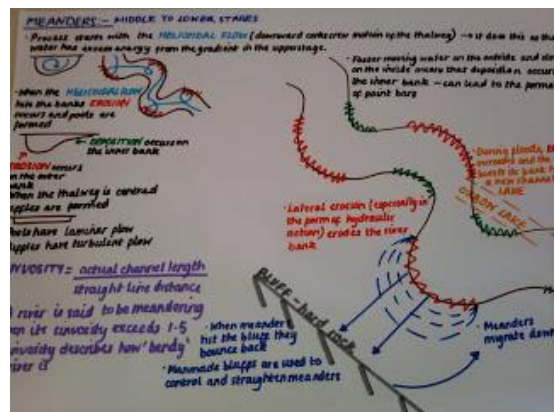 MEANDERS:- MIDDLE TO LOWER STAGES
• Process starts with the HELICOIDAL FLOW (downward corkscrew motion up the thalweg) → it does this as the
water has excess energy from the gradient in the upperstage.
• When the HELICOIDAL FLOW
hits the banks EROSION
occurs and pools are
formed
DEPOSITION occurs on
the inner bank
EROSION occurs
on the outer
bank
When the thalweg is centred
riffles are formed
Pools have laminar flow
riffles have turbulent flow
SINUOSITY = actual channel length
straight line distance
A river is said to be meandering
when its sinuosity exceeds 1.5
sinuosity describes how 'bendy'
river is
• Faster moving water on the outside and slo
on the inside means that deposition occurs
the inner bank - can lead to the forma
of point bars
• During floods,
a new channel
OXBOW LAKE
LAKE
• Lateral erosion (especially in
the form of hydraulic
action) erodes the river
bank
BLUFF - hard rock
• When meander
hit the bluff they
bounce back
• Manmade bluffs are used to
control and straighten meanders
• Meanders
migrate down